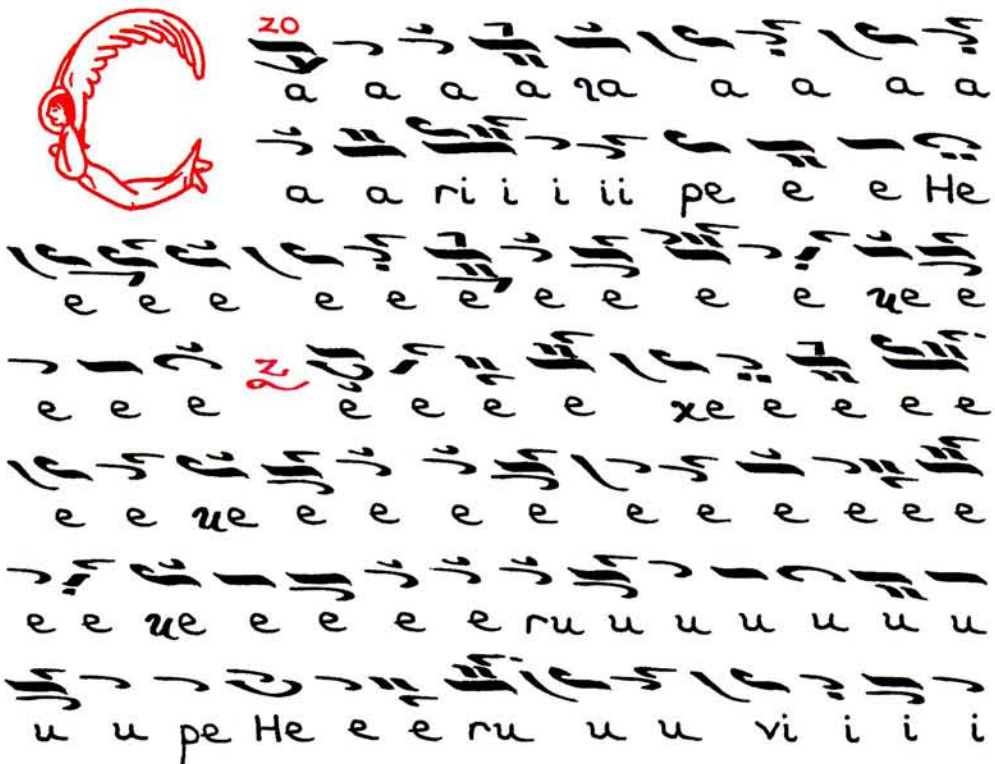 C zo
a a a a 𝼀a a a a a
a a ri i i i ii pe e e He
e e e e e e e e e e ue e
z
e e e e e e e xe e e e e
e e ue e e e e e e e e e e
e e ue e e e e ru u u u u u u
u u pe He e e ru u u vi i i i